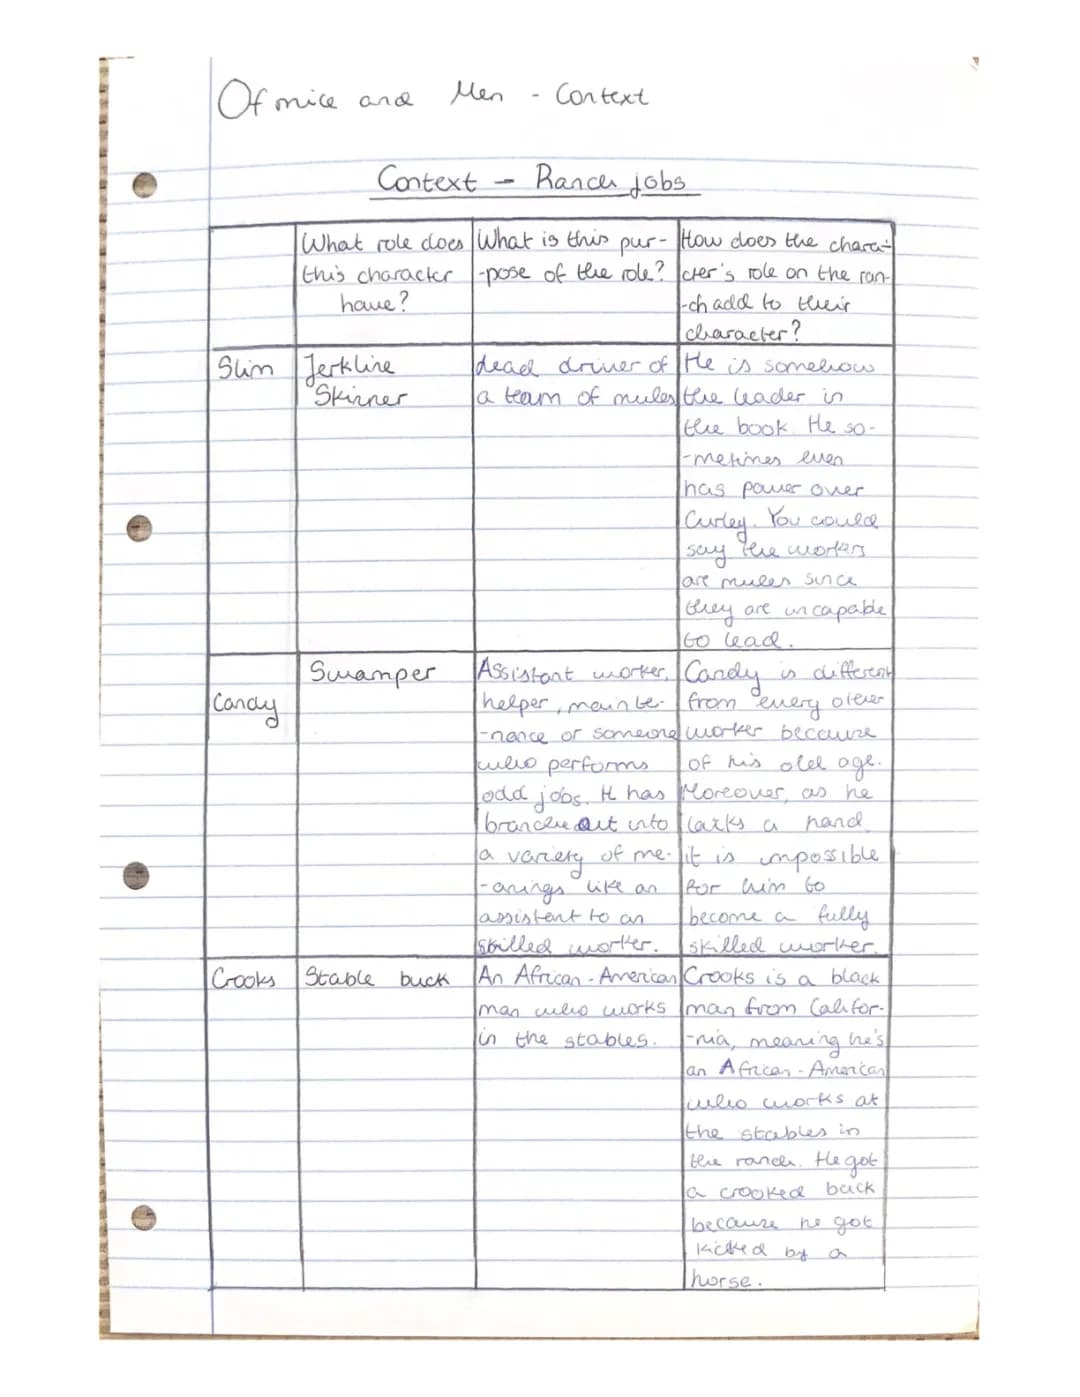 Of mice and Men - Context
Context - Ranch jobs
What role does
this character
have?
What is this pur-
-pose of the role?
How does the chara-
cter's role on the ran-
-ch add to their
character?
Slim
Jerkline
Skinner
dead driver of
a team of mules
He is somehow
the leader in
the book. He so-
-metimes even
has power over
Curley. You could
say the workers
are mules since
they are uncapable
to lead.
Candy
Swamper
Assistant worker,
helper, mainte-
-nance or someone
who performs
odd jobs. It has
branche out into
a variety of me-
-anings like an
assistent to an
skilled worker.
Candy is different
from every other
worker because
of his old age.
Moreover, as he
lacks a hand
it is impossible
for him to
become a fully
skilled worker.
Crooks
Stable buck
An African-American
man who works
in the stables.
Crooks is a black
man from Califor-
-nia, meaning he's
an African-American
who works at
the stables in
the ranch. He got
a crooked back
because he got
kicked by a
horse.